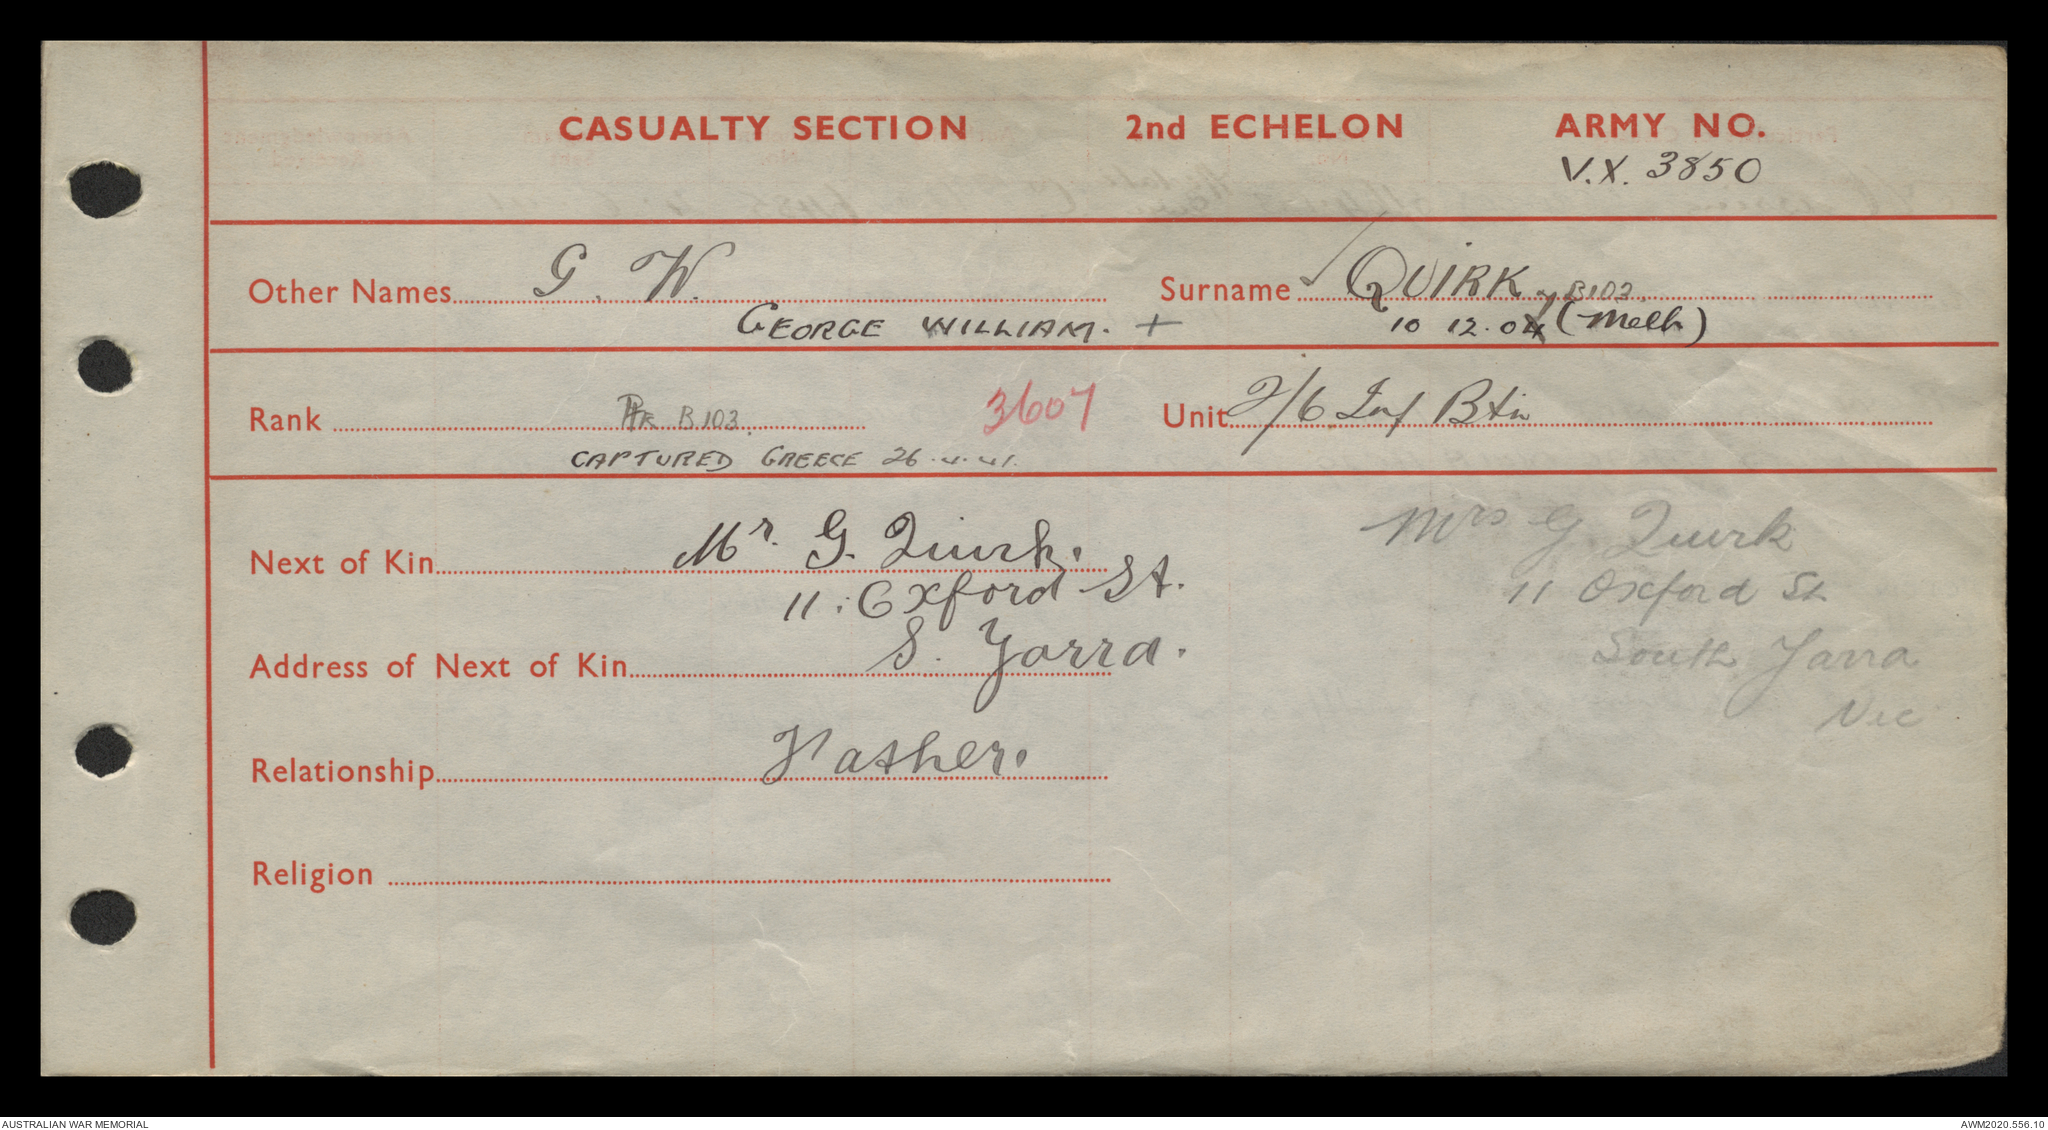 CASUALTY SECTION 2nd ECHELON ARMY NO.
V.X. 3850
Other Names G. W. Surname QUIRK B103.
GEORGE WILLIAM. + 10 12.04 (Melb)
Rank Pte B103. 3607 Unit 2/6 Inf Btn
CAPTURED GREECE 26.4.41.
Next of Kin Mr. G. Quirk.
11. Oxford St.
Address of Next of Kin S. Yarra.
Relationship Father.
Religion
Mrs G. Quirk
11 Oxford St
South Yarra
Vic
AUSTRALIAN WAR MEMORIAL AWM2020.556.10